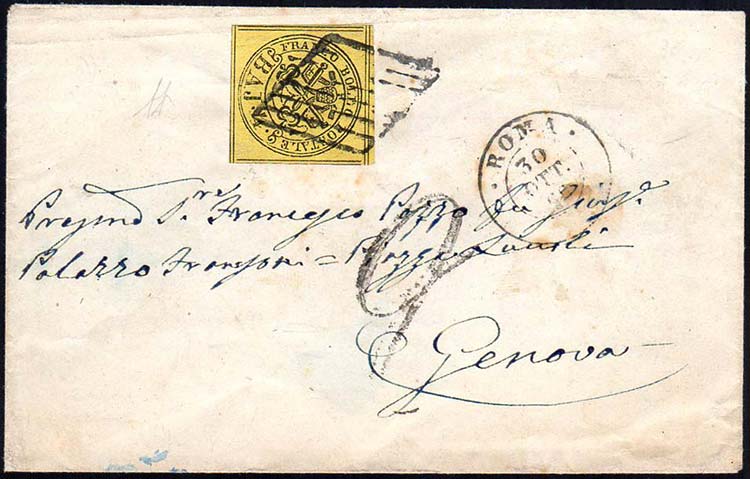 FRANCO BOLLO POSTALE
BAJ
ROMA
30
OTT.
Pregmo Sr. Francesco Pozzo fu Giusp.e
Palazzo Fransoni = Piazza
Genova